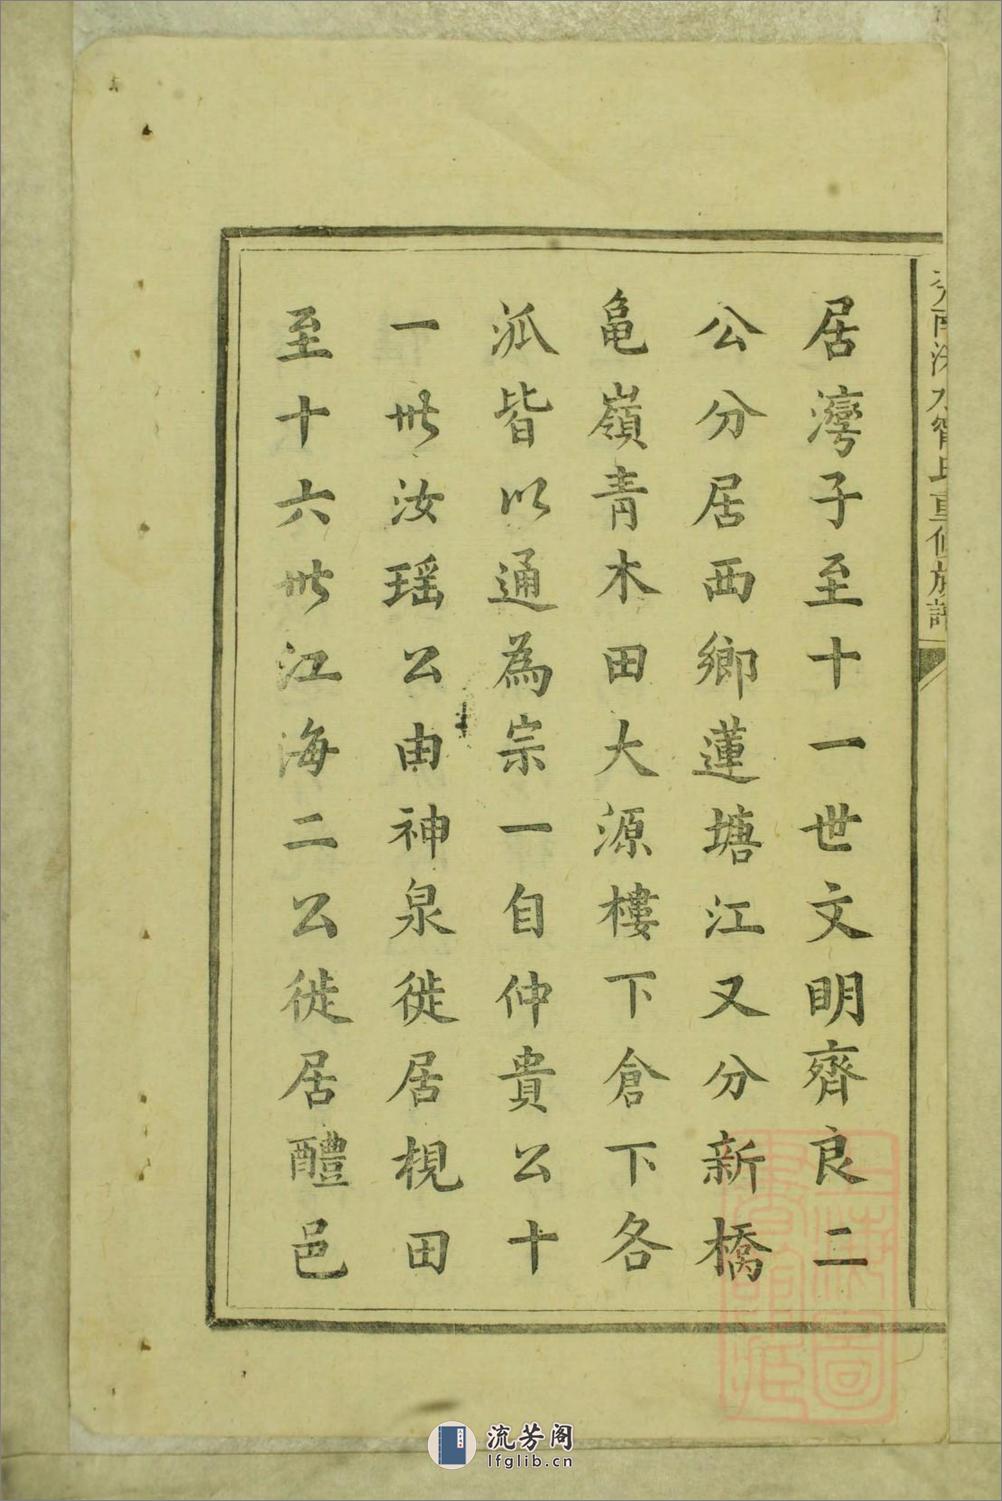 居灣子至十一世文明齊良二
公分居西鄉蓮塘江又分新橋
亀嶺青木田大源樓下倉下各
派皆以通為宗一自仲貴公十
一世汝瑶公由神泉徙居梘田
至十六世江海二公徙居醴邑
氏重修族譜
流芳阁
lfglib.cn